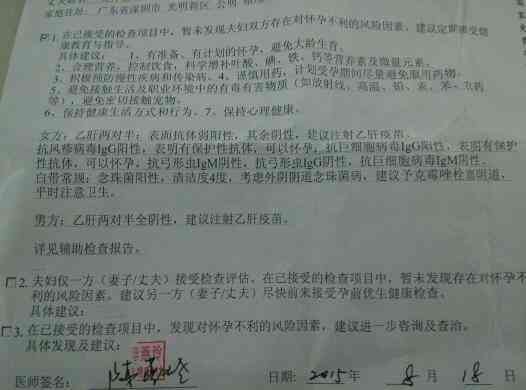 家庭住址：广东省深圳市 光明新区 公明
☑1. 在已接受的检查项目中，暂未发现夫妇双方存在对怀孕不利的风险因素。建议定期接受健
康教育与指导。
具体建议： 1、有准备、有计划的怀孕，避免大龄生育。
2、合理营养，控制饮食，科学增补叶酸、碘、铁、钙等营养素及微量元素。
3、积极预防慢性疾病和传染病。4、谨慎用药，计划受孕期间尽量避免取用药物。
5、避免接触生活及职业环境中的有毒有害物质（如放射线、高温、铅、汞、苯、农药
等），避免密切接触宠物。
6、保持健康生活方式和行为。7、保持心理健康。
女方：乙肝两对半：表面抗体弱阳性，其余阴性，建议注射乙肝疫苗。
抗风疹病毒IgG阳性，表明有保护性抗体，可以怀孕，抗巨细胞病毒IgG阳性，表明有保护
性抗体，可以怀孕，抗弓形虫IgM阴性，抗弓形虫IgG阴性，抗巨细胞病毒IgM阴性。
白带常规：念珠菌阳性，清洁度4度，考虑外阴阴道念珠菌病，建议予克霉唑栓塞阴道，
平时注意卫生。
男方：乙肝两对半全阴性，建议注射乙肝疫苗。
详见辅助检查报告。
□2. 夫妇仅一方（妻子/丈夫）接受检查评估。在已接受的检查项目中，暂未发现存在对怀孕不
利的风险因素。建议另一方（妻子/丈夫）尽快前来接受孕前优生健康检查。
具体建议：
□3. 在已接受的检查项目中，发现对怀孕不利的风险因素，建议进一步咨询及查治。
具体发现及建议：
医师签名： 日期: 2015年 8 月 18 日